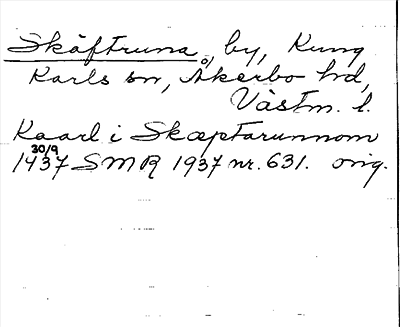 Skäftruna, by, Kung
Karls sn, Åkerbo hd,
Västm. l.
Kaarl i Skæptarunnom
30/9
1437 SMR 1937 nr. 631. orig.